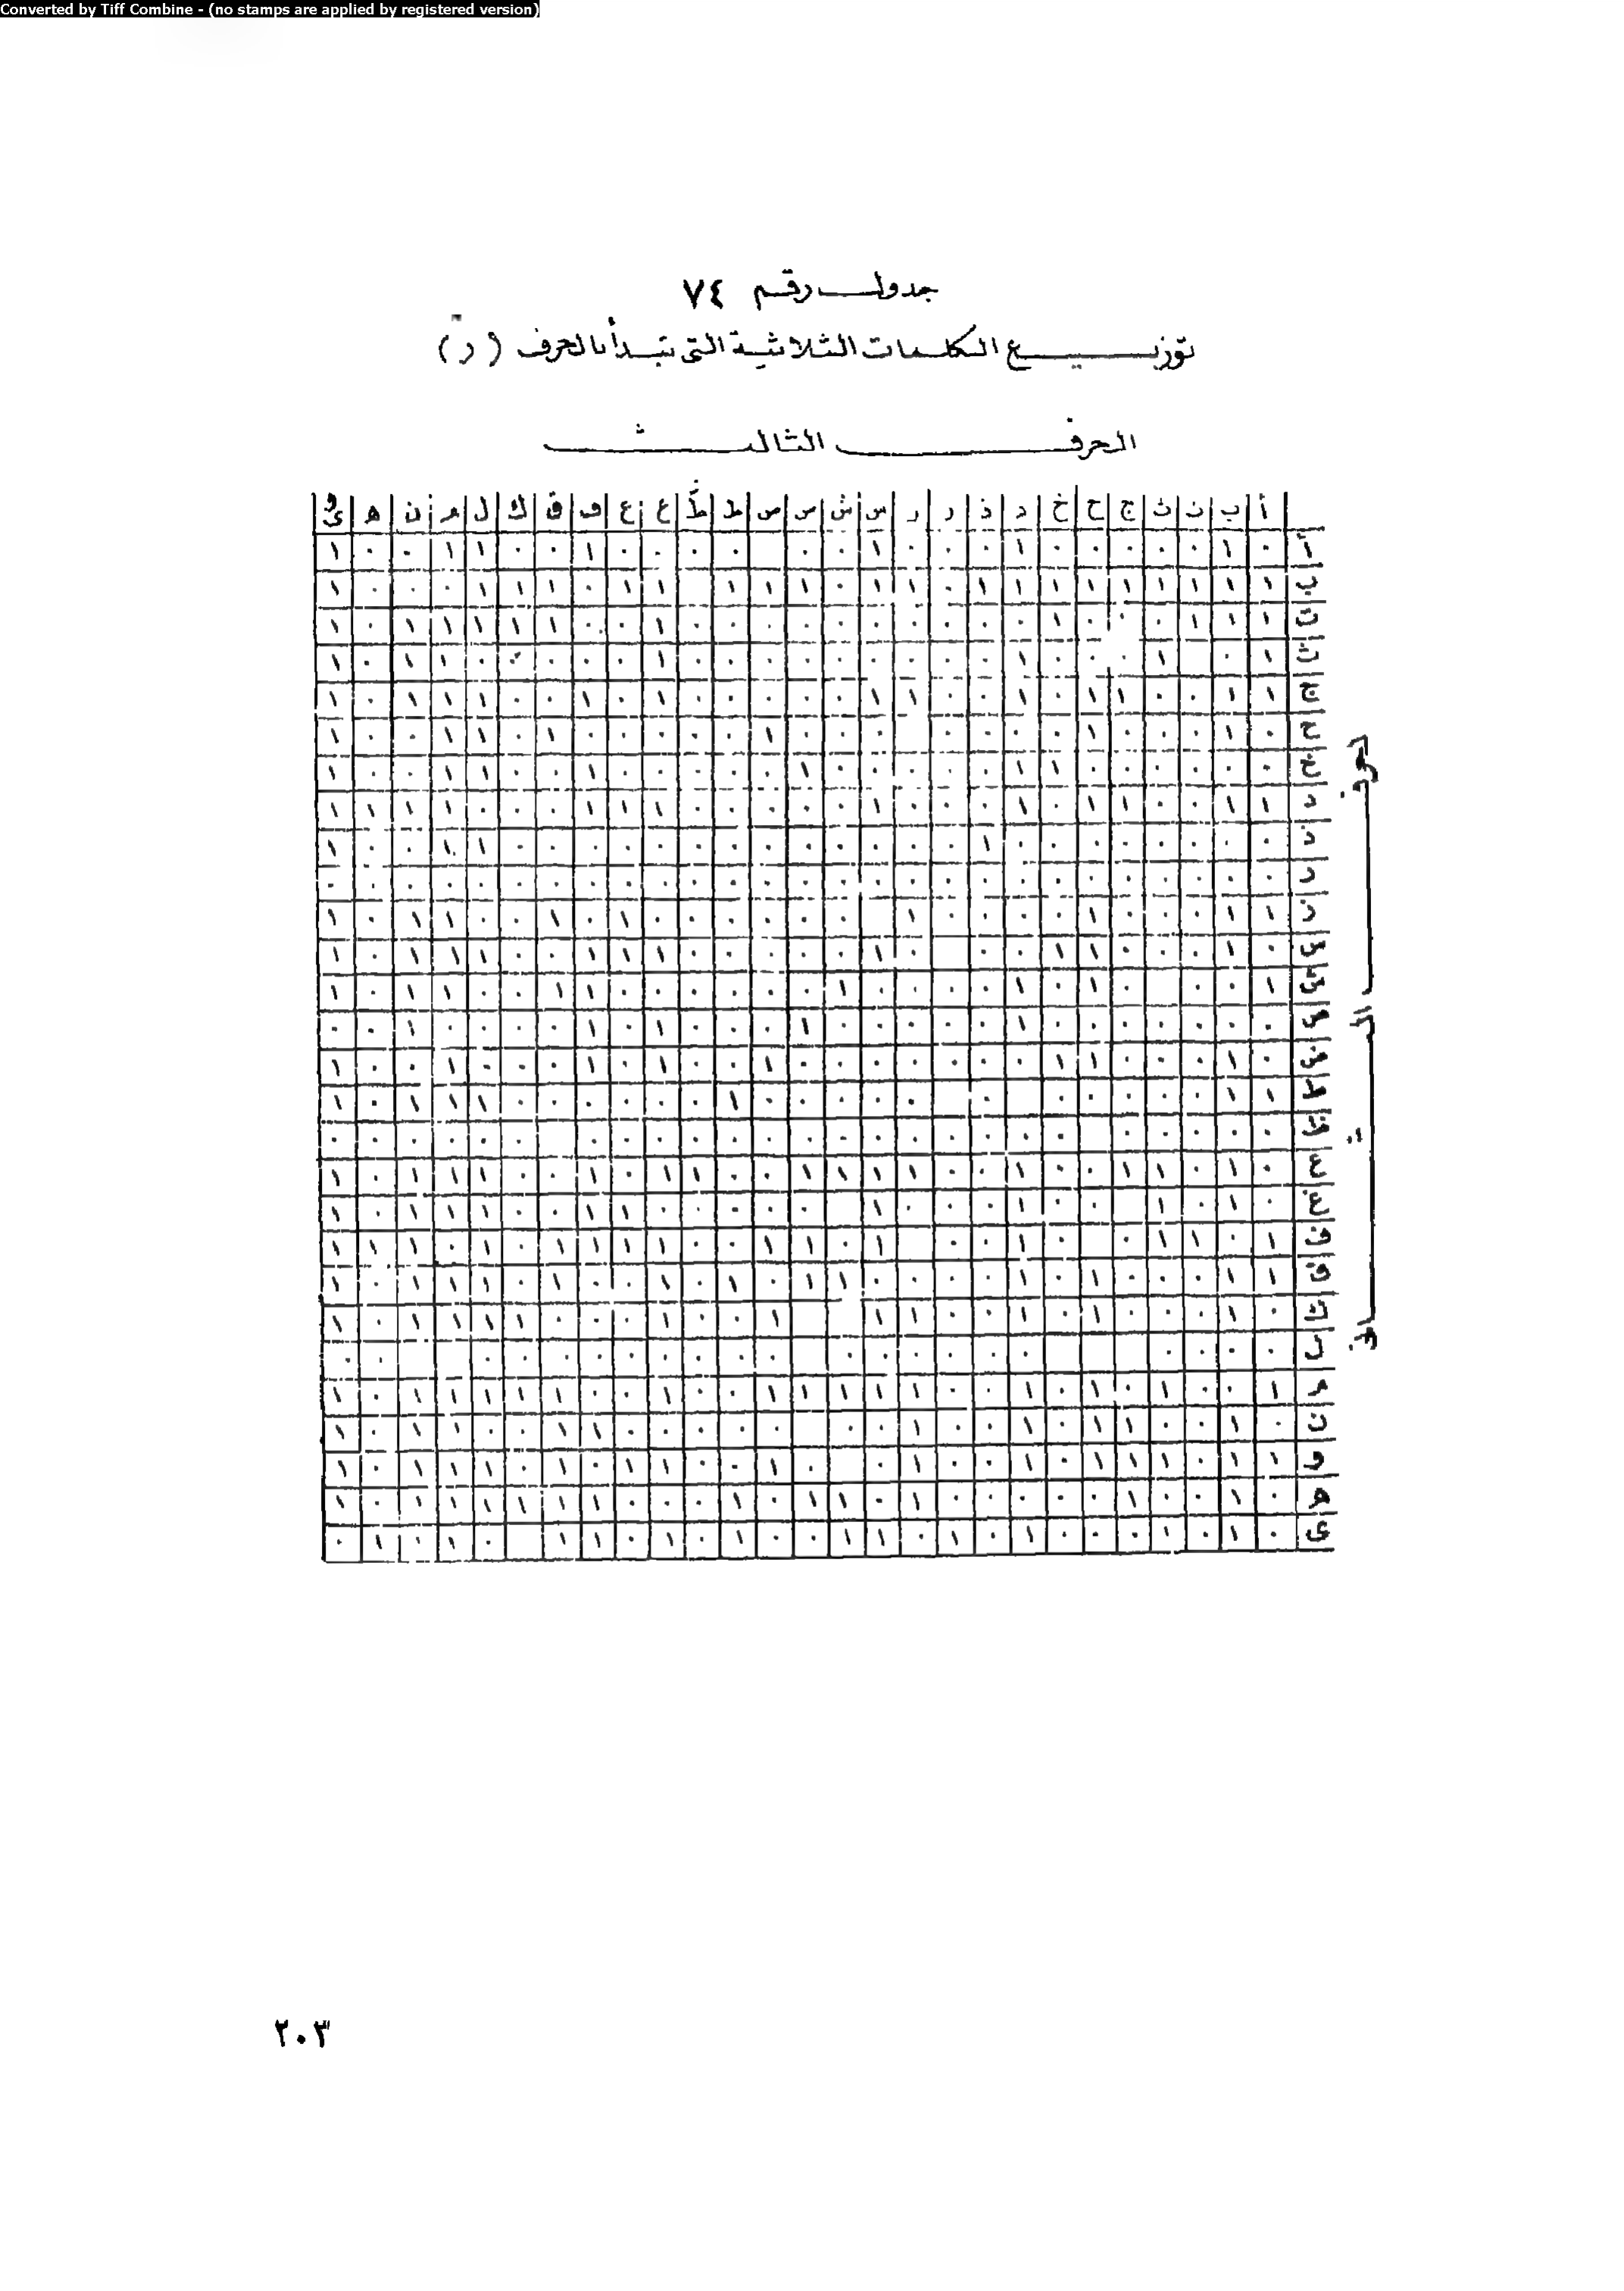 Converted by Tiff Combine - (no stamps are applied by registered version)
جدول رقم ٧٤
توزيع الكلمات الثلاثية التى تبدأ بالحرف ( ر )
الحرف الثالث
أ ب ت ث ج ح خ د ذ ر ز س ش ص ض ط ظ ع غ ف ق ك ل م ن ه و ى
أ ٠ ١ ٠ ٠ ٠ ٠ ٠ ١ ٠ ٠ ٠ ١ ٠ ٠ ٠ ٠ ٠ ٠ ١ ٠ ٠ ١ ١ ٠ ٠ ١
ب ١ ١ ١ ١ ١ ١ ١ ١ ١ ٠ ١ ١ ٠ ١ ١ ١ ١ ١ ٠ ١ ١ ١ ٠ ٠ ٠ ١
ت ١ ١ ١ ٠ ٠ ٠ ١ ٠ ٠ ٠ ٠ ٠ ٠ ٠ ٠ ٠ ٠ ١ ٠ ٠ ١ ١ ١ ١ ١ ٠ ١
ث ١ ٠ ١ ٠ ٠ ٠ ١ ٠ ٠ ٠ ٠ ٠ ٠ ٠ ٠ ٠ ١ ٠ ٠ ٠ ٠ ٠ ١ ١ ٠ ١
ج ١ ١ ٠ ٠ ١ ١ ٠ ١ ٠ ٠ ١ ١ ٠ ٠ ٠ ٠ ٠ ١ ٠ ١ ٠ ٠ ١ ١ ١ ٠ ١
ح ٠ ١ ٠ ٠ ٠ ١ ٠ ٠ ٠ ٠ ٠ ٠ ٠ ١ ٠ ٠ ٠ ٠ ٠ ١ ٠ ١ ١ ٠ ٠ ١
خ ٠ ٠ ٠ ٠ ٠ ٠ ١ ١ ٠ ٠ ٠ ٠ ٠ ١ ٠ ٠ ٠ ٠ ٠ ١ ٠ ٠ ١ ١ ٠ ٠ ١
د ١ ١ ٠ ٠ ١ ١ ٠ ١ ٠ ٠ ٠ ١ ٠ ٠ ٠ ٠ ٠ ١ ١ ١ ٠ ٠ ٠ ١ ١ ١ ١
ذ ٠ ٠ ٠ ٠ ٠ ٠ ٠ ٠ ١ ٠ ٠ ٠ ٠ ٠ ٠ ٠ ٠ ٠ ٠ ٠ ٠ ٠ ١ ١ ٠ ٠ ١
ر ٠ ٠ ٠ ٠ ٠ ٠ ٠ ٠ ٠ ٠ ٠ ٠ ٠ ٠ ٠ ٠ ٠ ٠ ٠ ٠ ٠ ٠ ٠ ٠ ٠ ٠ ٠
ز ١ ١ ٠ ٠ ٠ ١ ٠ ٠ ٠ ٠ ١ ٠ ٠ ٠ ٠ ٠ ٠ ١ ٠ ١ ٠ ٠ ١ ١ ٠ ١
س ٠ ١ ٠ ٠ ٠ ١ ١ ٠ ٠ ٠ ١ ٠ ٠ ٠ ٠ ٠ ١ ١ ١ ٠ ٠ ١ ١ ١ ٠ ١
ش ١ ٠ ٠ ٠ ١ ٠ ١ ٠ ٠ ٠ ٠ ١ ٠ ٠ ٠ ٠ ٠ ٠ ١ ١ ٠ ٠ ١ ١ ٠ ١
ص ٠ ٠ ٠ ٠ ٠ ٠ ٠ ١ ٠ ٠ ٠ ٠ ٠ ١ ٠ ٠ ٠ ١ ٠ ١ ٠ ٠ ٠ ٠ ١ ٠ ٠
ض ٠ ١ ٠ ٠ ٠ ١ ١ ٠ ٠ ٠ ٠ ٠ ٠ ٠ ١ ٠ ٠ ١ ٠ ١ ٠ ٠ ٠ ١ ٠ ٠ ١
ط ١ ١ ٠ ٠ ٠ ٠ ٠ ٠ ٠ ٠ ٠ ٠ ٠ ١ ٠ ٠ ٠ ٠ ٠ ٠ ١ ١ ١ ٠ ١
ظ ٠ ٠ ٠ ٠ ٠ ٠ ٠ ٠ ٠ ٠ ٠ ٠ ٠ ٠ ٠ ٠ ٠ ٠ ٠ ٠ ٠ ٠ ٠ ٠ ٠
ع ٠ ١ ٠ ١ ١ ٠ ٠ ١ ٠ ٠ ١ ١ ١ ١ ٠ ٠ ١ ١ ٠ ١ ٠ ٠ ١ ١ ١ ٠ ١
غ ٠ ١ ٠ ١ ٠ ٠ ١ ٠ ٠ ٠ ١ ٠ ٠ ٠ ٠ ٠ ١ ١ ٠ ٠ ١ ١ ١ ٠ ١
ف ١ ٠ ١ ١ ٠ ٠ ١ ٠ ٠ ١ ٠ ١ ١ ٠ ٠ ١ ١ ١ ١ ٠ ١ ٠ ١ ١ ١
ق ١ ١ ٠ ٠ ٠ ١ ٠ ١ ٠ ٠ ٠ ٠ ١ ١ ٠ ١ ٠ ١ ٠ ٠ ١ ٠ ١ ١ ١ ٠ ١
ك ٠ ١ ٠ ٠ ٠ ١ ٠ ١ ٠ ٠ ١ ١ ١ ٠ ٠ ١ ٠ ٠ ٠ ١ ١ ١ ١ ٠ ١
ل ٠ ٠ ٠ ٠ ٠ ٠ ٠ ٠ ٠ ٠ ٠ ٠ ٠ ٠ ٠ ٠ ٠ ٠ ٠ ٠ ٠
م ١ ٠ ٠ ١ ٠ ١ ٠ ١ ٠ ٠ ١ ١ ١ ١ ١ ٠ ٠ ١ ٠ ٠ ١ ١ ١ ١ ١ ٠ ١
ن ٠ ١ ٠ ٠ ١ ١ ٠ ١ ٠ ٠ ١ ٠ ٠ ٠ ٠ ٠ ٠ ٠ ١ ١ ٠ ٠ ١ ١ ٠ ١
و ١ ١ ٠ ١ ١ ١ ٠ ١ ٠ ٠ ١ ٠ ٠ ١ ٠ ٠ ١ ١ ٠ ١ ٠ ١ ١ ١ ٠ ١
ه ٠ ١ ٠ ٠ ١ ٠ ٠ ٠ ٠ ٠ ١ ٠ ١ ١ ٠ ١ ٠ ٠ ٠ ١ ١ ١ ١ ١ ١ ٠ ١
ى ٠ ١ ٠ ١ ٠ ٠ ٠ ١ ٠ ١ ٠ ١ ١ ٠ ٠ ١ ٠ ١ ٠ ١ ١ ٠ ١ ٠ ١ ٠
الحرف الثانى
٢٠٣